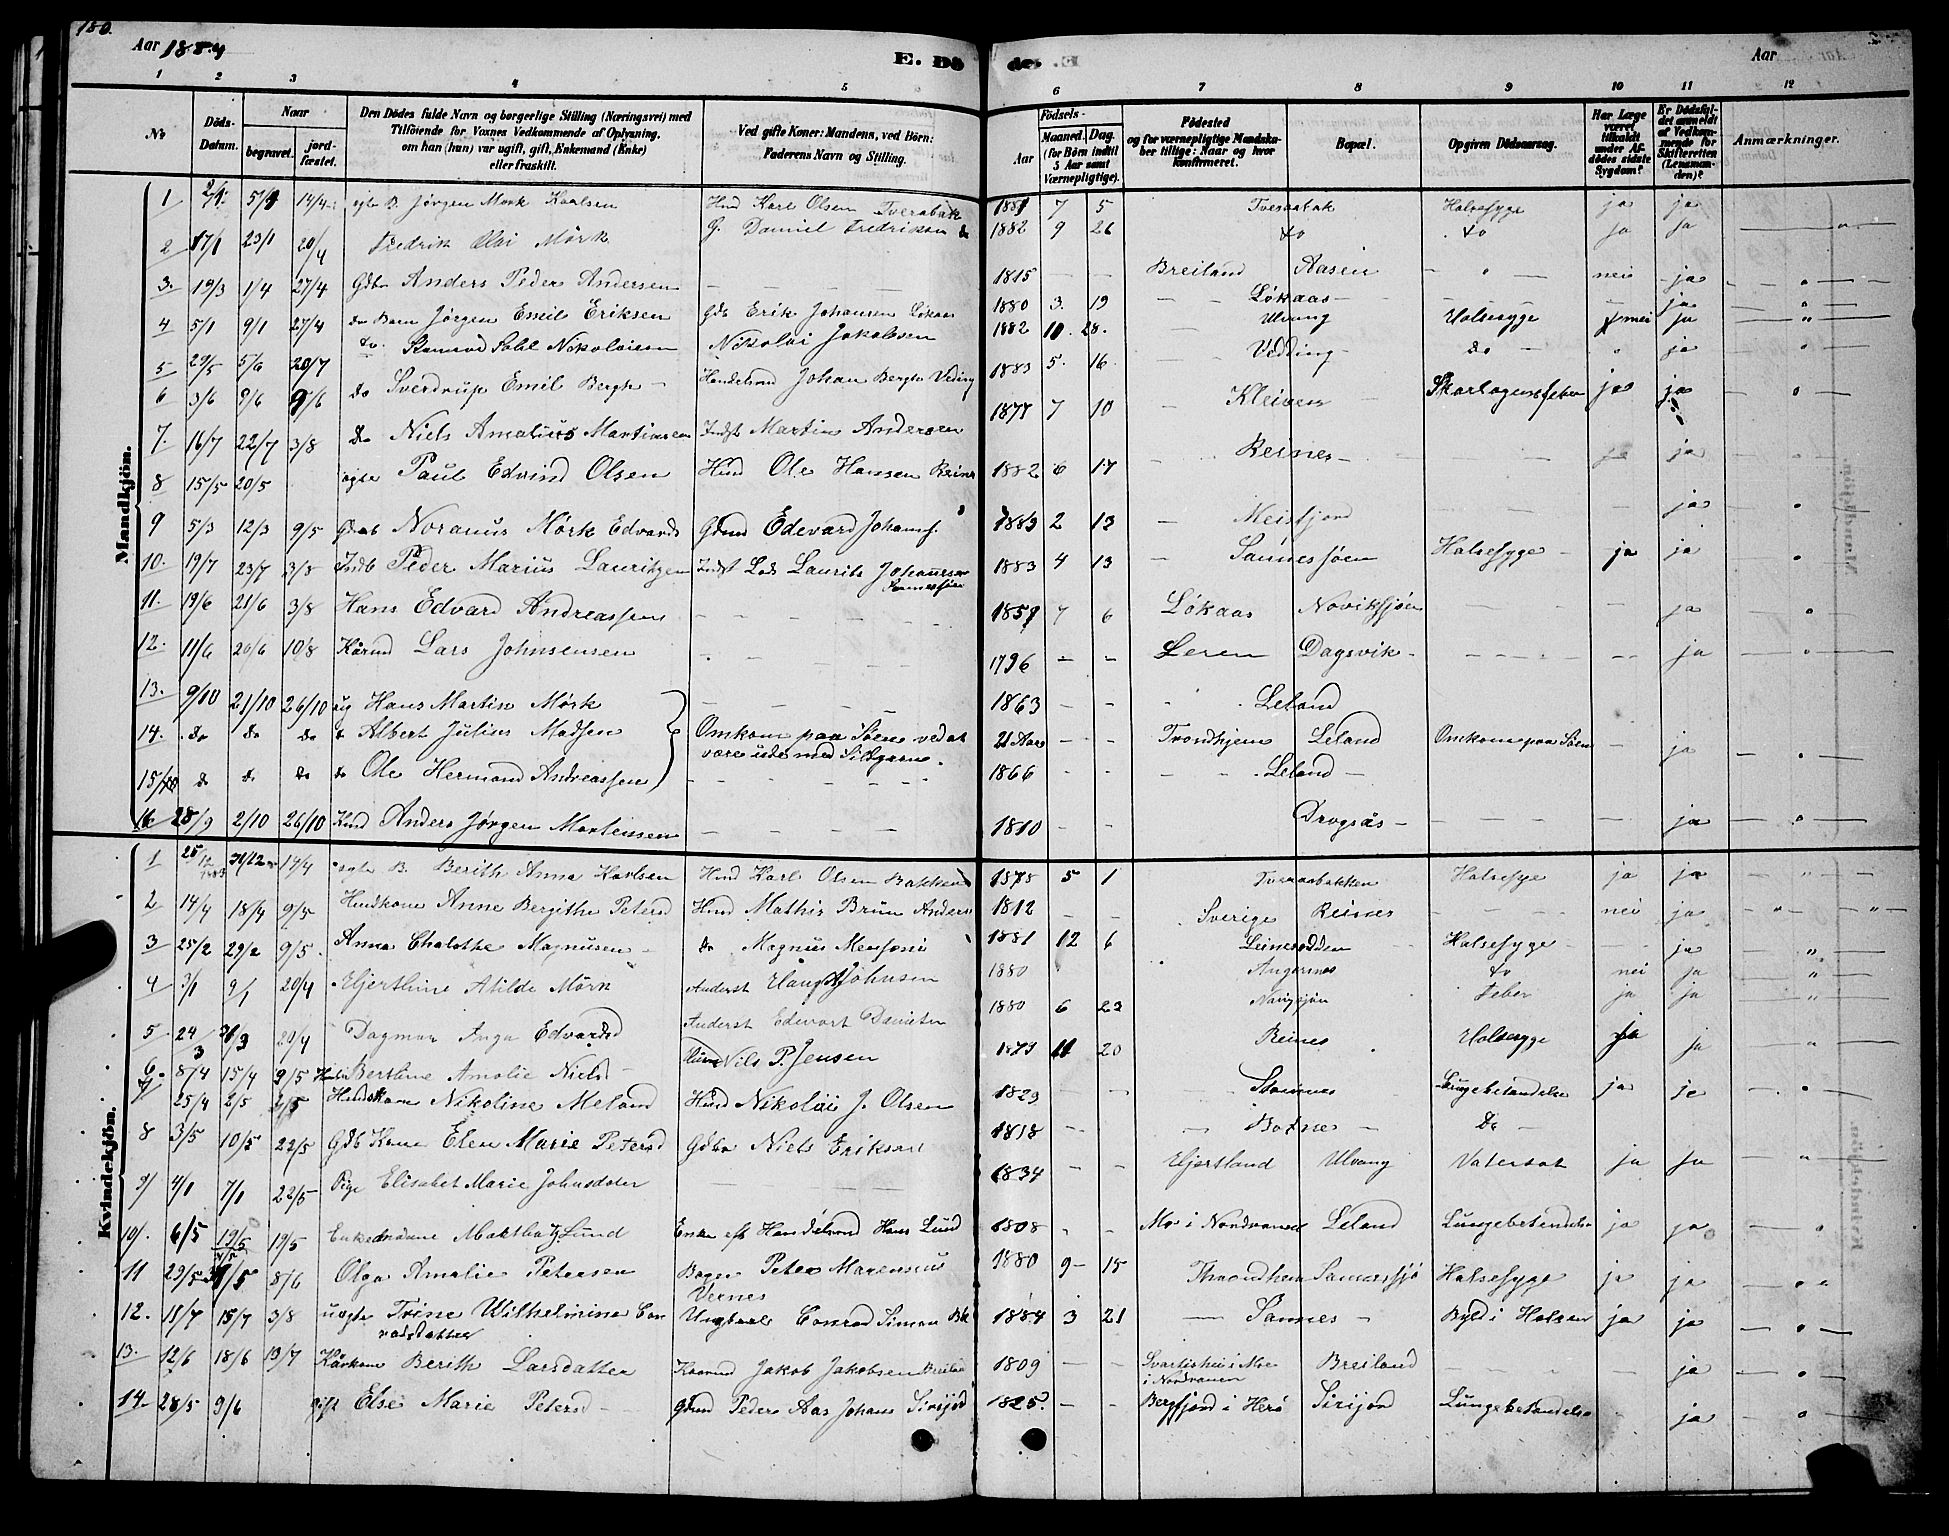 180.
Aar 1884
E. Dö
de. E.
Aar
1 2 3 4 5 6 7 8 9 10 11 12
No
Döds-Datum.
Naar
begravet.
jordfæstet.
Den Dödes fulde Navn og borgerlige Stilling (Næringsvei) med
Tilföiende for Voxnes Vedkommende af Oplysning,
om han (hun) var ugift, gift, Enkemand (Enke)
eller fraskilt.
Ved gifte Koner: Mandens, ved Börn:
Faderens Navn og Stilling.
Födsels-
Aar
Maaned. Dag.
(for Börn indtil
5 Aar samt
Værnepligtige).
Födested
og for værnepligtige Mandska-
ber tillige: Naar og hvor
konfirmeret.
Bopæl.
Opgiven Dödsaarsag.
Har Læge
været
tilkaldt
under Af-
dödes sidste
Sygdom?
Er Dödsfal-
det anmeldt
af Vedkom-
mende for
Skifteretten
(Lensman-
den)?
Anmærkninger.
Mandkjön.
1 2/1 5/1 14/4 egte B. Jørgen Mork Karlsen Hmd Karl Olsen Tveråbak 1881 7 5 Tveraabak Halsesyge ja ja
2 17/1 23/1 20/4 Fredrik Olai Mörk G. Daniel Fredriksen do 1882 9 26 do do ja ja
3. 19/3 1/4 27/4 Gdbr Anders Peder Andersen 1815 Breiland Aasen nei ja
4 5/1 9/1 27/4 do Barn Jørgen Emil Eriksen Gdb Erik Johansen Lökaas 1880 3. 19 Lökaas ja
5 29/5 5/6 20/7 do Nikolaisen Nikolai Jakobsen 1882 10. 28. Ulvang Halsesyge nei ja
6 3/6 9/6 9/6 do Sverdrup Emil Bergh Handelsmd Johan Bergh Veding 1883 5. 16 Vedding do ja
7. 16/7 22/7 3/8 do Niels Amalius Martinsen Indst Martin Andersen 1877 7 10 Kleiven Skarlagensfeber ja ja
8 15/5 20/5 egte Paul Edvind Olsen Hmd Ole Hansen Reines 1882 6 17 Reines ja ja
9 5/3 12/3 9/5 Noranus Mörk Edvards Gdmd Edevard Johans. 1883 2 13 Meisfjord ja
10. 19/7 23/7 3/8 Indb Peder Marius Lauritzen Indst Lods Laurits Johansen Sannessjöen 1883 4 13 Sannessjöen Halsesyge ja ja
11. 19/6 21/6 3/8 Hans Edvard Andreassen 1851 7 6 Lökaas Novikssjöen ja
12. 11/6 20/6 10/8 Kårmd Lars Johnsensen 1796 Leren Dagsvik ja
13. 9/10 21/10 26/10 ug Hans Martin Mörk 1863 Leland
14. do do do do Albert Julius Madsen Omkom paa Söen ved at
være ude med Sildgarne. 21 Aar Trondhjem Leland Omkom paa Söen ja
15/10 do do do do Ole Hermand Andreassen 1866 Leland
16 28/9 2/10 26/10 Kmd Anders Jørgen Mortensen 1810 Drogsås ja
Kvindekjön.
1 25/12 1883 14/4 egte B. Berith Anna Karlsen Hmd Karl Olsen Bakken 1878 5 1 Tveraabakken Halsesye ja ja
2 14/4 18/4 9/5 Hmdskone Anne Bergithe Petersd Hmd Mathis Brun Anders 1812 Sverige Reines nei ja
3 25/2 29/2 9/5. Anna Chalothe Magnusen do Magnus Mensoni 1881 12 6 Leinesodden Halsesyge ja
4 3/1 9/1 20/4 Hjerthine Atilde Mörk Anderst Hans Johnsen 1880 Angersnes do nei ja
5 24/3 31/3 20/4 Dagmar Inga Edvardsd Anderst Edevart Danielsn 1880 6 23 Feber ja ja
6. 8/4 15/4 9/5 Berthine Amalie Nielsd Nils P. Jensen 1879 11 20 Reines Halsesyge ja ja
7 25/4 2/5 2/5 Hmdskone Nikoline Meland Hmd Nikolai J. Olsen 1829 Stamnes Lungebetændelse ja ja
8 3/5 10/5 22/5 Gdb Kone Elen Marie Petersd Gdbr Niels Eriksen 1818 Botnes do
9/ 4/1 7/1 22/5 Pige Elisabet Marie Johnsdater 1834 Hjertland Ulvang Vatersot ja ja
10/. 6/5 19/5 19/5 Enkemadame Maktha Lund Enke eft Handelsmd Hans Lund 1808 Mo i Nordranen Leland Lungebetændelse ja ja
11 29/5 8/6 Olga Amalie Petersen Bager Peter Marensius
Vernes 1880 9 15 Throndhem Sannessjö Halsesyge ja ja
12. 11/7 15/7 3/8 uegte Trine Wilhelmine Con
radsdatter Ungkarl Conrad Simon 1884 3 21 Sannes Byld i Halsen ja ja
13. 12/6 18/6 13/7 Kårkone Berith Larsdatter Kaarmd Jakob Jakobsen Breiland 1809 Svartishei i Mo
i Nordranen Breiland ja
14. 28/5 9/6 Gift Else Marie Petersd Gdmd Peder Aas Johans Sirijord 1825. Bergfjord i Herö Sirijord Lungebetændelse ja